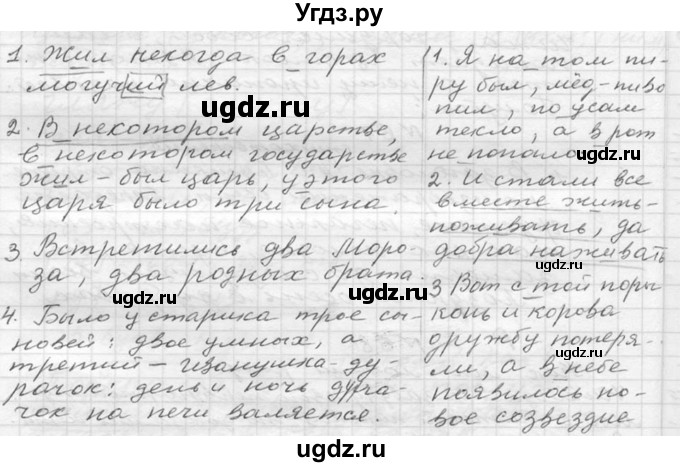 Угдз.ру
1. Жил некогда в горах
могучий лев.
ugdz.ru
2. В некотором царстве,
в некотором государстве
жил-был царь, у этого
царя было три сына.
3 Встретились два Моро-
за, два родных брата.
4. Было у старика трое сы-
новей: двое умных, а
третий — Иванушка-ду-
рачок: день и ночь дура-
чок на печи валяется.
1. Я на том пи-
ру был, мёд-пиво
пил, по усам
текло, а в рот
не попало
2. И стали все
вместе жить-
поживать, да
добра наживать
3 Вот с той поры
конь и корова
дружбу потеря-
ли, а в небе
появилось но-
вое созвездие
ugdz.ru
ugdz.ru
ugdz.ru
ugdz.ru
ugdz.ru
ugdz.ru
ugdz.ru